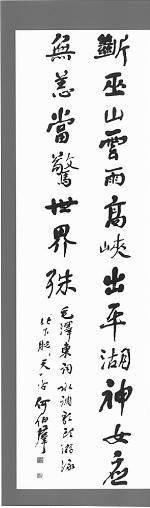 斷巫山雲雨高峽出平湖神女应
無恙當驚世界殊
毛澤東詞水調歌頭游泳
何伯群